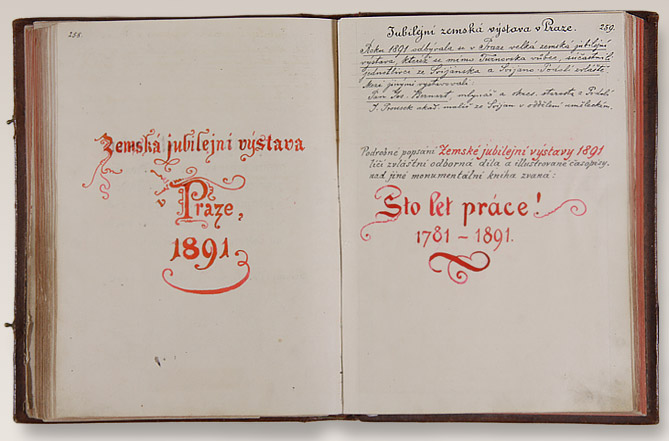 258.
Zemská jubilejní výstava
v
Praze,
1891.
Jubilejní zemská výstava v Praze. 259.
Roku 1891 odbývala se v Praze velká zemská jubilejní
výstava, kteréž se mimo Turnovska vůbec, súčastnili
jednotlivce ze Svijanska a Svijano-Podolí zvláště.
Mezi jinými vystavovali:
Pan Jos. Bernart, mlynář a okres. starosta z Podolí
J. Prousek akad. malíř ze Svijan v oddělení uměleckém.
Podrobné popsání Zemské jubilejní výstavy 1891
líčí zvláštní odborná díla a illustrované časopisy,
nad jiné monumentální kniha zvaná:
Sto let práce!
1781 – 1891.